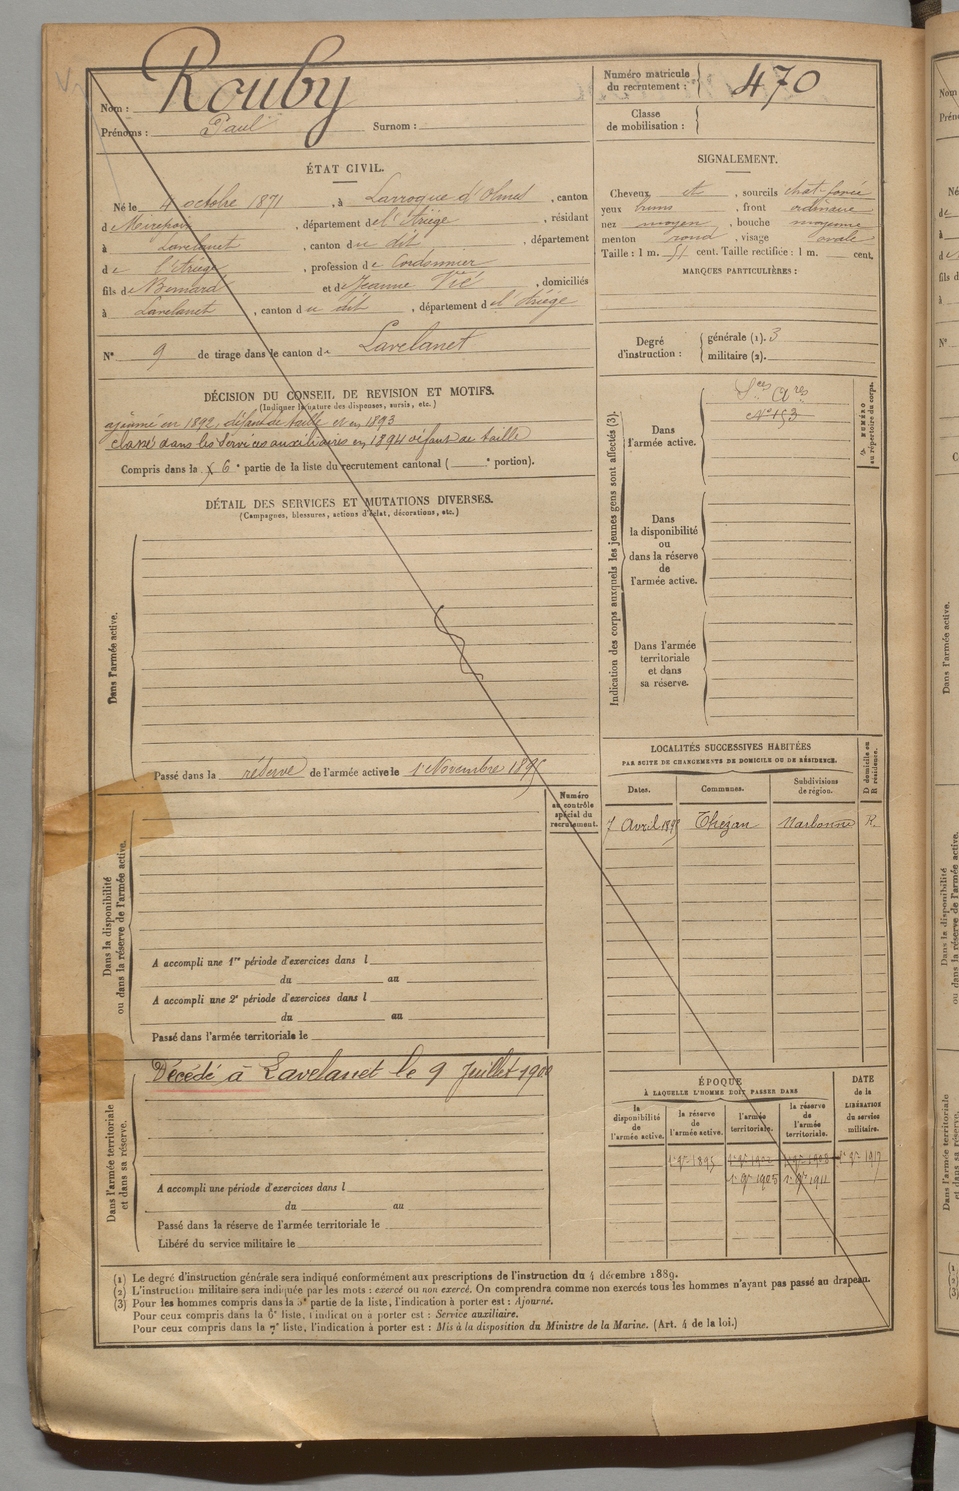 Nom : Rouby
Prénoms : Paul Surnom :
Numéro matricule du recrutement : 470
Classe de mobilisation :
ÉTAT CIVIL.
Né le 4 octobre 1871, à Larroque d'Olmes, canton
de Mirepoix, département de l'Ariège, résidant
à Lavelanet, canton du dit, département
de l'Ariège, profession de Cordonnier
fils de Bernard et de Jeanne Vié, domiciliés
à Lavelanet, canton du dit, département de l'Ariège
N° 9 de tirage dans le canton de Lavelanet
SIGNALEMENT.
Cheveux et, sourcils chat-foncé
yeux bruns, front ordinaire
nez moyen, bouche moyenne
menton rond, visage ovale
Taille : 1 m. 51 cent. Taille rectifiée : 1 m. cent.
MARQUES PARTICULIÈRES :
Degré d'instruction : générale (1). 3
militaire (2).
DÉCISION DU CONSEIL DE REVISION ET MOTIFS.
(Indiquer la nature des dispenses, sursis, etc.)
ajourné en 1892, défaut de taille et en 1893
classé dans les services auxiliaires en 1894 défaut de taille
Compris dans la 6e partie de la liste du recrutement cantonal ( e portion).
DÉTAIL DES SERVICES ET MUTATIONS DIVERSES.
(Campagnes, blessures, actions d'éclat, décorations, etc.)
Indication des corps auxquels les jeunes gens sont affectés (3).
Dans l'armée active.
Sces Ares
N° 153
NUMÉRO au répertoire du corps.
Dans la disponibilité ou dans la réserve de l'armée active.
Dans l'armée territoriale et dans sa réserve.
Dans l'armée active.
Passé dans la réserve de l'armée active le 1 Novembre 1895
Numéro au contrôle spécial du recrutement.
LOCALITÉS SUCCESSIVES HABITÉES
PAR SUITE DE CHANGEMENTS DE DOMICILE OU DE RÉSIDENCE.
Dates. Communes. Subdivisions de région. D domicile ou R résidence.
7 Avril 1895 Thézan Narbonne R.
Dans la disponibilité ou dans la réserve de l'armée active.
A accompli une 1re période d'exercices dans l
du au
A accompli une 2e période d'exercices dans l
du au
Passé dans l'armée territoriale le
Décédé à Lavelanet le 9 Juillet 1900
Dans l'armée territoriale et dans sa réserve.
A accompli une période d'exercices dans l
du au
Passé dans la réserve de l'armée territoriale le
Libéré du service militaire le
ÉPOQUE
À LAQUELLE L'HOMME DOIT PASSER DANS
la disponibilité de l'armée active. la réserve de l'armée active. l'armée territoriale. la réserve de l'armée territoriale.
DATE de la LIBÉRATION du service militaire.
1er 9re 1895 1er 9re 1908 1er 9re 1917
1er 9re 1905 1er 9re 1911
(1) Le degré d'instruction générale sera indiqué conformément aux prescriptions de l'instruction du 4 décembre 1889.
(2) L'instruction militaire sera indiquée par les mots : exercé ou non exercé. On comprendra comme non exercés tous les hommes n'ayant pas passé au drapeau.
(3) Pour les hommes compris dans la 5e partie de la liste, l'indication à porter est : Ajourné.
Pour ceux compris dans la 6e liste, l'indication à porter est : Service auxiliaire.
Pour ceux compris dans la 7e liste, l'indication à porter est : Mis à la disposition du Ministre de la Marine. (Art. 4 de la loi.)